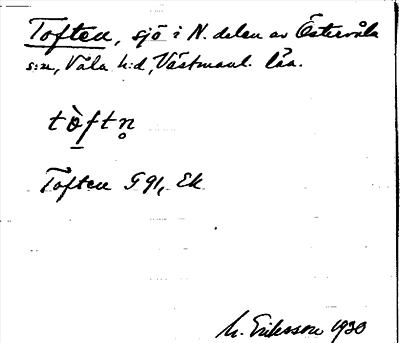 Toften, sjö i N. delen av Östervåla
s:n, Våla h:d, Västmanl. län.
tòftn̥
Toften G 91, Ek.
M. Eriksson 1930